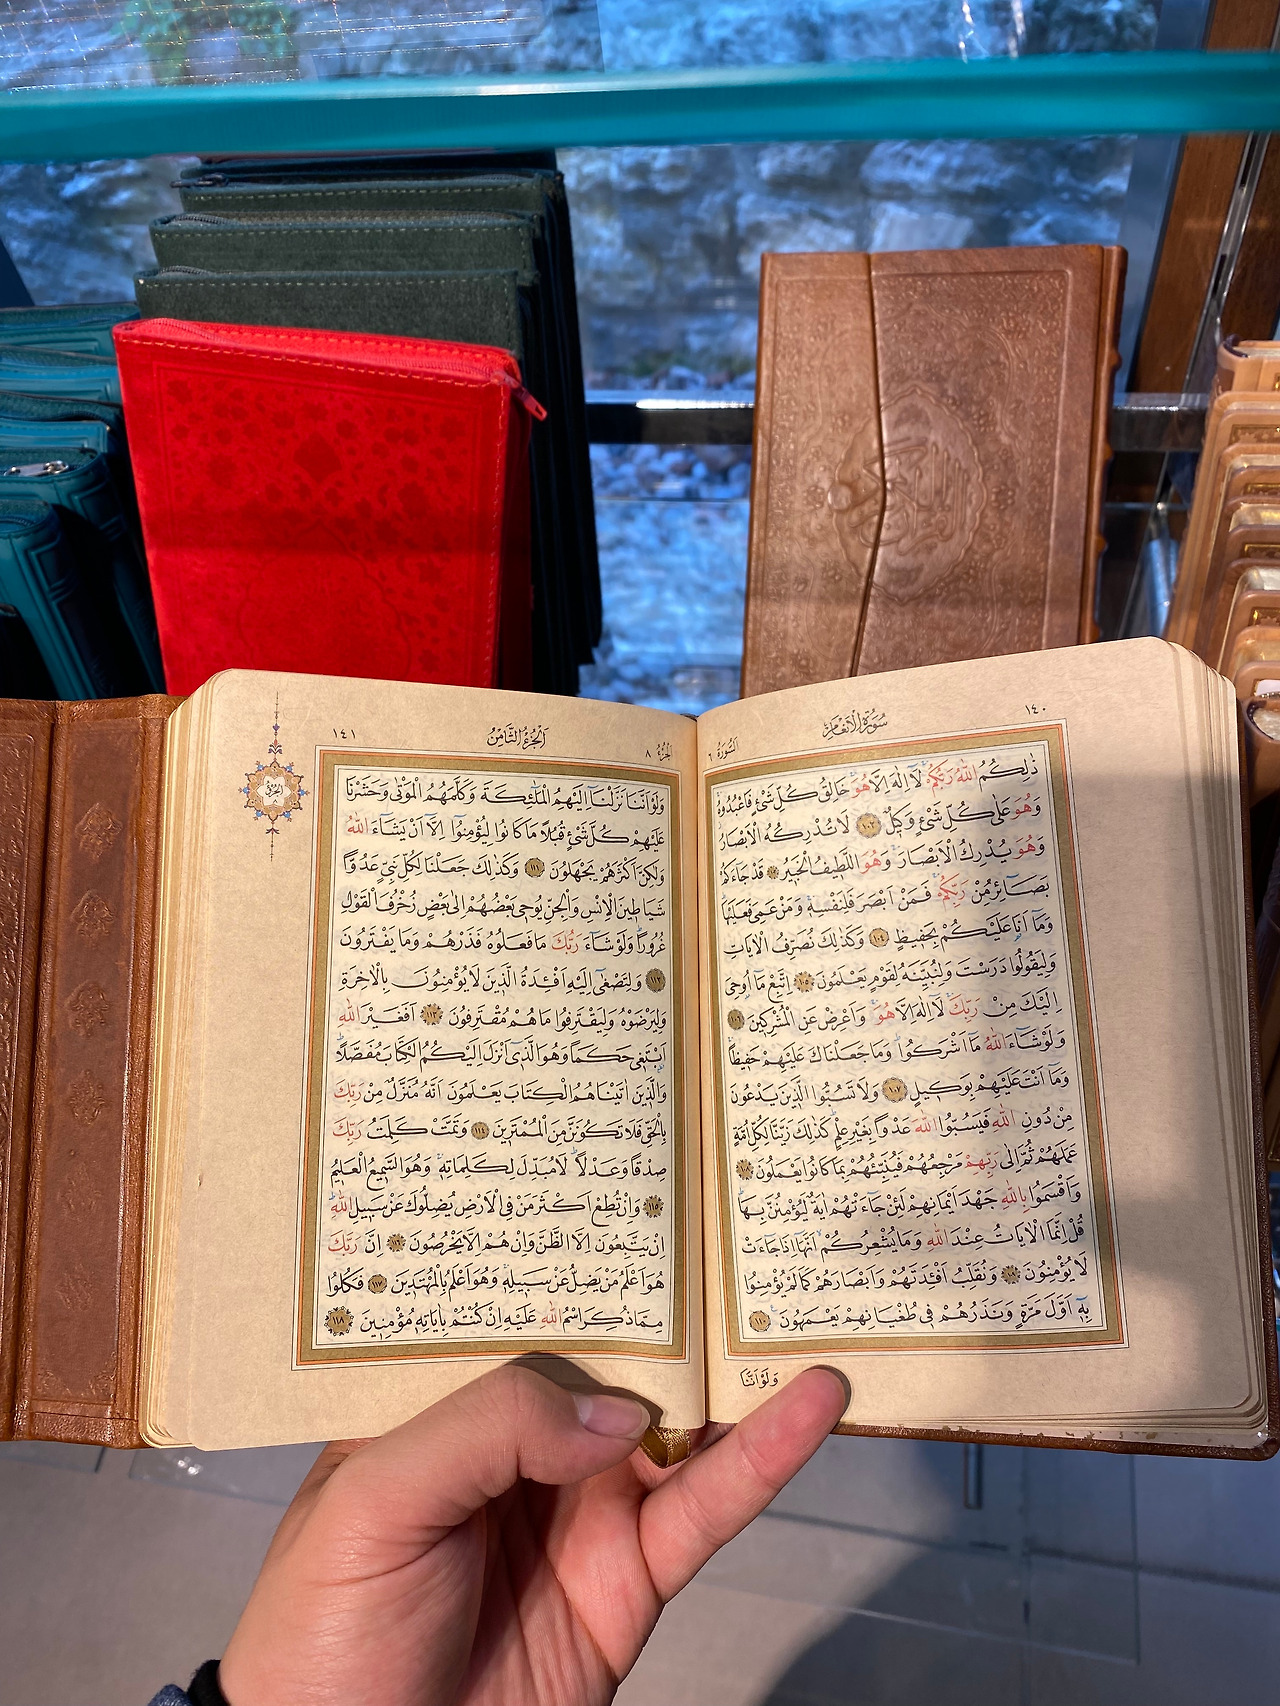 ١٤٠
سُورَةُ الْاَنْعَامِ
اَلسُّورَةُ ٦
ذٰلِكُمُ اللّٰهُ رَبُّكُمْۚ لَٓا اِلٰهَ اِلَّا هُوَۚ خَالِقُ كُلِّ شَيْءٍ فَاعْبُدُوهُۚ
وَهُوَ عَلٰى كُلِّ شَيْءٍ وَك۪يلٌ ١٠٢ لَا تُدْرِكُهُ الْاَبْصَارُۘ
وَهُوَ يُدْرِكُ الْاَبْصَارَۚ وَهُوَ اللَّط۪يفُ الْخَب۪يرُ ١٠٣ قَدْ جَٓاءَكُمْ
بَصَٓائِرُ مِنْ رَبِّكُمْۚ فَمَنْ اَبْصَرَ فَلِنَفْسِه۪ۚ وَمَنْ عَمِيَ فَعَلَيْهَاۜ
وَمَٓا اَنَا۬ عَلَيْكُمْ بِحَف۪يظٍ ١٠٤ وَكَذٰلِكَ نُصَرِّفُ الْاٰيَاتِ
وَلِيَقُولُوا دَرَسْتَ وَلِنُبَيِّنَهُ لِقَوْمٍ يَعْلَمُونَ ١٠٥ اِتَّبِعْ مَٓا اُو۫حِيَ
اِلَيْكَ مِنْ رَبِّكَۚ لَٓا اِلٰهَ اِلَّا هُوَۚ وَاَعْرِضْ عَنِ الْمُشْرِك۪ينَ ١٠٦
وَلَوْ شَٓاءَ اللّٰهُ مَٓا اَشْرَكُواۜ وَمَا جَعَلْنَاكَ عَلَيْهِمْ حَف۪يظًاۚ
وَمَٓا اَنْتَ عَلَيْهِمْ بِوَك۪يلٍ ١٠٧ وَلَا تَسُبُّوا الَّذ۪ينَ يَدْعُونَ
مِنْ دُونِ اللّٰهِ فَيَسُبُّوا اللّٰهَ عَدْوًا بِغَيْرِ عِلْمٍۜ كَذٰلِكَ زَيَّنَّا لِكُلِّ اُمَّةٍ
عَمَلَهُمْۖ ثُمَّ اِلٰى رَبِّهِمْ مَرْجِعُهُمْ فَيُنَبِّئُهُمْ بِمَا كَانُوا يَعْمَلُونَ ١٠٨
وَاَقْسَمُوا بِاللّٰهِ جَهْدَ اَيْمَانِهِمْ لَئِنْ جَٓاءَتْهُمْ اٰيَةٌ لَيُؤْمِنُنَّ بِهَاۜ
قُلْ اِنَّمَا الْاٰيَاتُ عِنْدَ اللّٰهِ وَمَا يُشْعِرُكُمْۙ اَنَّهَٓا اِذَا جَٓاءَتْ
لَا يُؤْمِنُونَ ١٠٩ وَنُقَلِّبُ اَفْـِٔدَتَهُمْ وَاَبْصَارَهُمْ كَمَا لَمْ يُؤْمِنُوا
بِه۪ٓ اَوَّلَ مَرَّةٍ وَنَذَرُهُمْ ف۪ي طُغْيَانِهِمْ يَعْمَهُونَ ١١٠
وَلَوْ اَنَّنَا
١٤١
اَلْجُزْءُ الثَّامِنُ
اَلْجُزْءُ ٨
وَلَوْ اَنَّنَا نَزَّلْنَٓا اِلَيْهِمُ الْمَلٰٓئِكَةَ وَكَلَّمَهُمُ الْمَوْتٰى وَحَشَرْنَا
عَلَيْهِمْ كُلَّ شَيْءٍ قُبُلًا مَا كَانُوا لِيُؤْمِنُٓوا اِلَّٓا اَنْ يَشَٓاءَ اللّٰهُ
وَلٰكِنَّ اَكْثَرَهُمْ يَجْهَلُونَ ١١١ وَكَذٰلِكَ جَعَلْنَا لِكُلِّ نَبِيٍّ عَدُوًّا
شَيَاط۪ينَ الْاِنْسِ وَالْجِنِّ يُوح۪ي بَعْضُهُمْ اِلٰى بَعْضٍ زُخْرُفَ الْقَوْلِ
غُرُورًاۜ وَلَوْ شَٓاءَ رَبُّكَ مَا فَعَلُوهُ فَذَرْهُمْ وَمَا يَفْتَرُونَ
١١٢ وَلِتَصْغٰٓى اِلَيْهِ اَفْـِٔدَةُ الَّذ۪ينَ لَا يُؤْمِنُونَ بِالْاٰخِرَةِ
وَلِيَرْضَوْهُ وَلِيَقْتَرِفُوا مَا هُمْ مُقْتَرِفُونَ ١١٣ اَفَغَيْرَ اللّٰهِ
اَبْتَغ۪ي حَكَمًا وَهُوَ الَّذ۪ٓي اَنْزَلَ اِلَيْكُمُ الْكِتَابَ مُفَصَّلًاۜ
وَالَّذ۪ينَ اٰتَيْنَاهُمُ الْكِتَابَ يَعْلَمُونَ اَنَّهُ مُنَزَّلٌ مِنْ رَبِّكَ
بِالْحَقِّ فَلَا تَكُونَنَّ مِنَ الْمُمْتَر۪ينَ ١١٤ وَتَمَّتْ كَلِمَتُ رَبِّكَ
صِدْقًا وَعَدْلًاۜ لَا مُبَدِّلَ لِكَلِمَاتِه۪ۚ وَهُوَ السَّم۪يعُ الْعَل۪يمُ
١١٥ وَاِنْ تُطِعْ اَكْثَرَ مَنْ فِي الْاَرْضِ يُضِلُّوكَ عَنْ سَب۪يلِ اللّٰهِۜ
اِنْ يَتَّبِعُونَ اِلَّا الظَّنَّ وَاِنْ هُمْ اِلَّا يَخْرُصُونَ ١١٦ اِنَّ رَبَّكَ
هُوَ اَعْلَمُ مَنْ يَضِلُّ عَنْ سَب۪يلِه۪ۚ وَهُوَ اَعْلَمُ بِالْمُهْتَد۪ينَ ١١٧ فَكُلُوا
مِمَّا ذُكِرَ اسْمُ اللّٰهِ عَلَيْهِ اِنْ كُنْتُمْ بِاٰيَاتِه۪ مُؤْمِن۪ينَ ١١٨